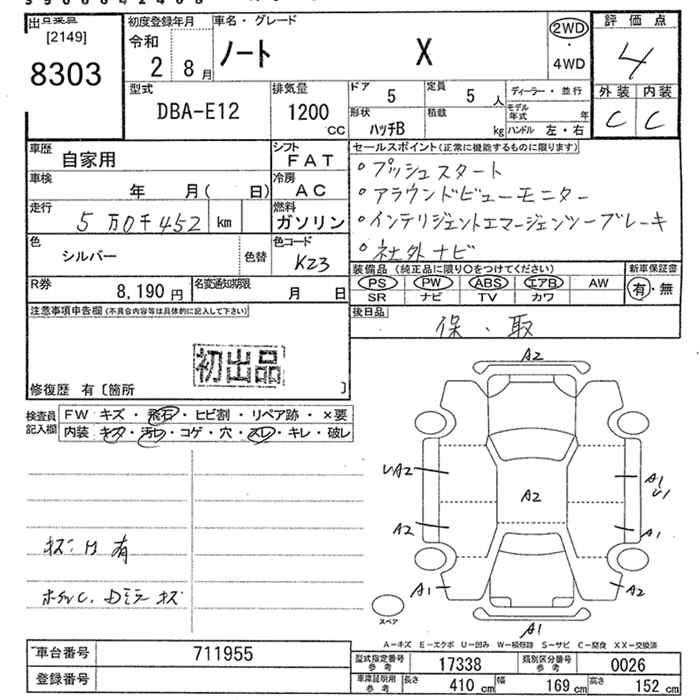 [2149]
8303
初度登録年月
令和
2 8月
車名・グレード
ノート X
2WD
・
4WD
評価点
4
外装 内装
C C
型式
DBA-E12
排気量
1200
cc
ドア 5
定員 5 人
形状 ハッチB
積載 kg
ディーラー・並行
モデル年式 年
ハンドル 左・右
車歴 自家用
シフト FAT
車検 年 月( 日)
冷房 AC
走行 5万0千452 km
燃料 ガソリン
色 シルバー 色替
色コード K23
R券 8,190円
名変通知期限 月 日
セールスポイント(正常に機能するものに限ります)
・プッシュスタート
・アラウンドビューモニター
・インテリジェントエマージェンシーブレーキ
・社外ナビ
装備品(純正品に限り○をつけてください)
PS PW ABS エアB AW
SR ナビ TV カワ
新車保証書
有・無
後日品
保、取
注意事項申告欄(不具合内容等は具体的に記入して下さい)
初出品
修復歴 有〔箇所 〕
検査員記入欄
FW キズ・飛石・ヒビ割・リペア跡・×要
内装 キズ・汚レ・コゲ・穴・スレ・キレ・破レ
A2
UA2
A1
U1
A2
A2
A1
A1
A2
A1
スペア
A-キズ E-エクボ U-凹み W-補修跡 S-サビ C-腐食 XX-交換済
車台番号 711955
登録番号
型式指定番号参考 17338
類別区分番号参考 0026
車庫証明用参考 長さ 410cm 幅 169cm 高さ 152cm